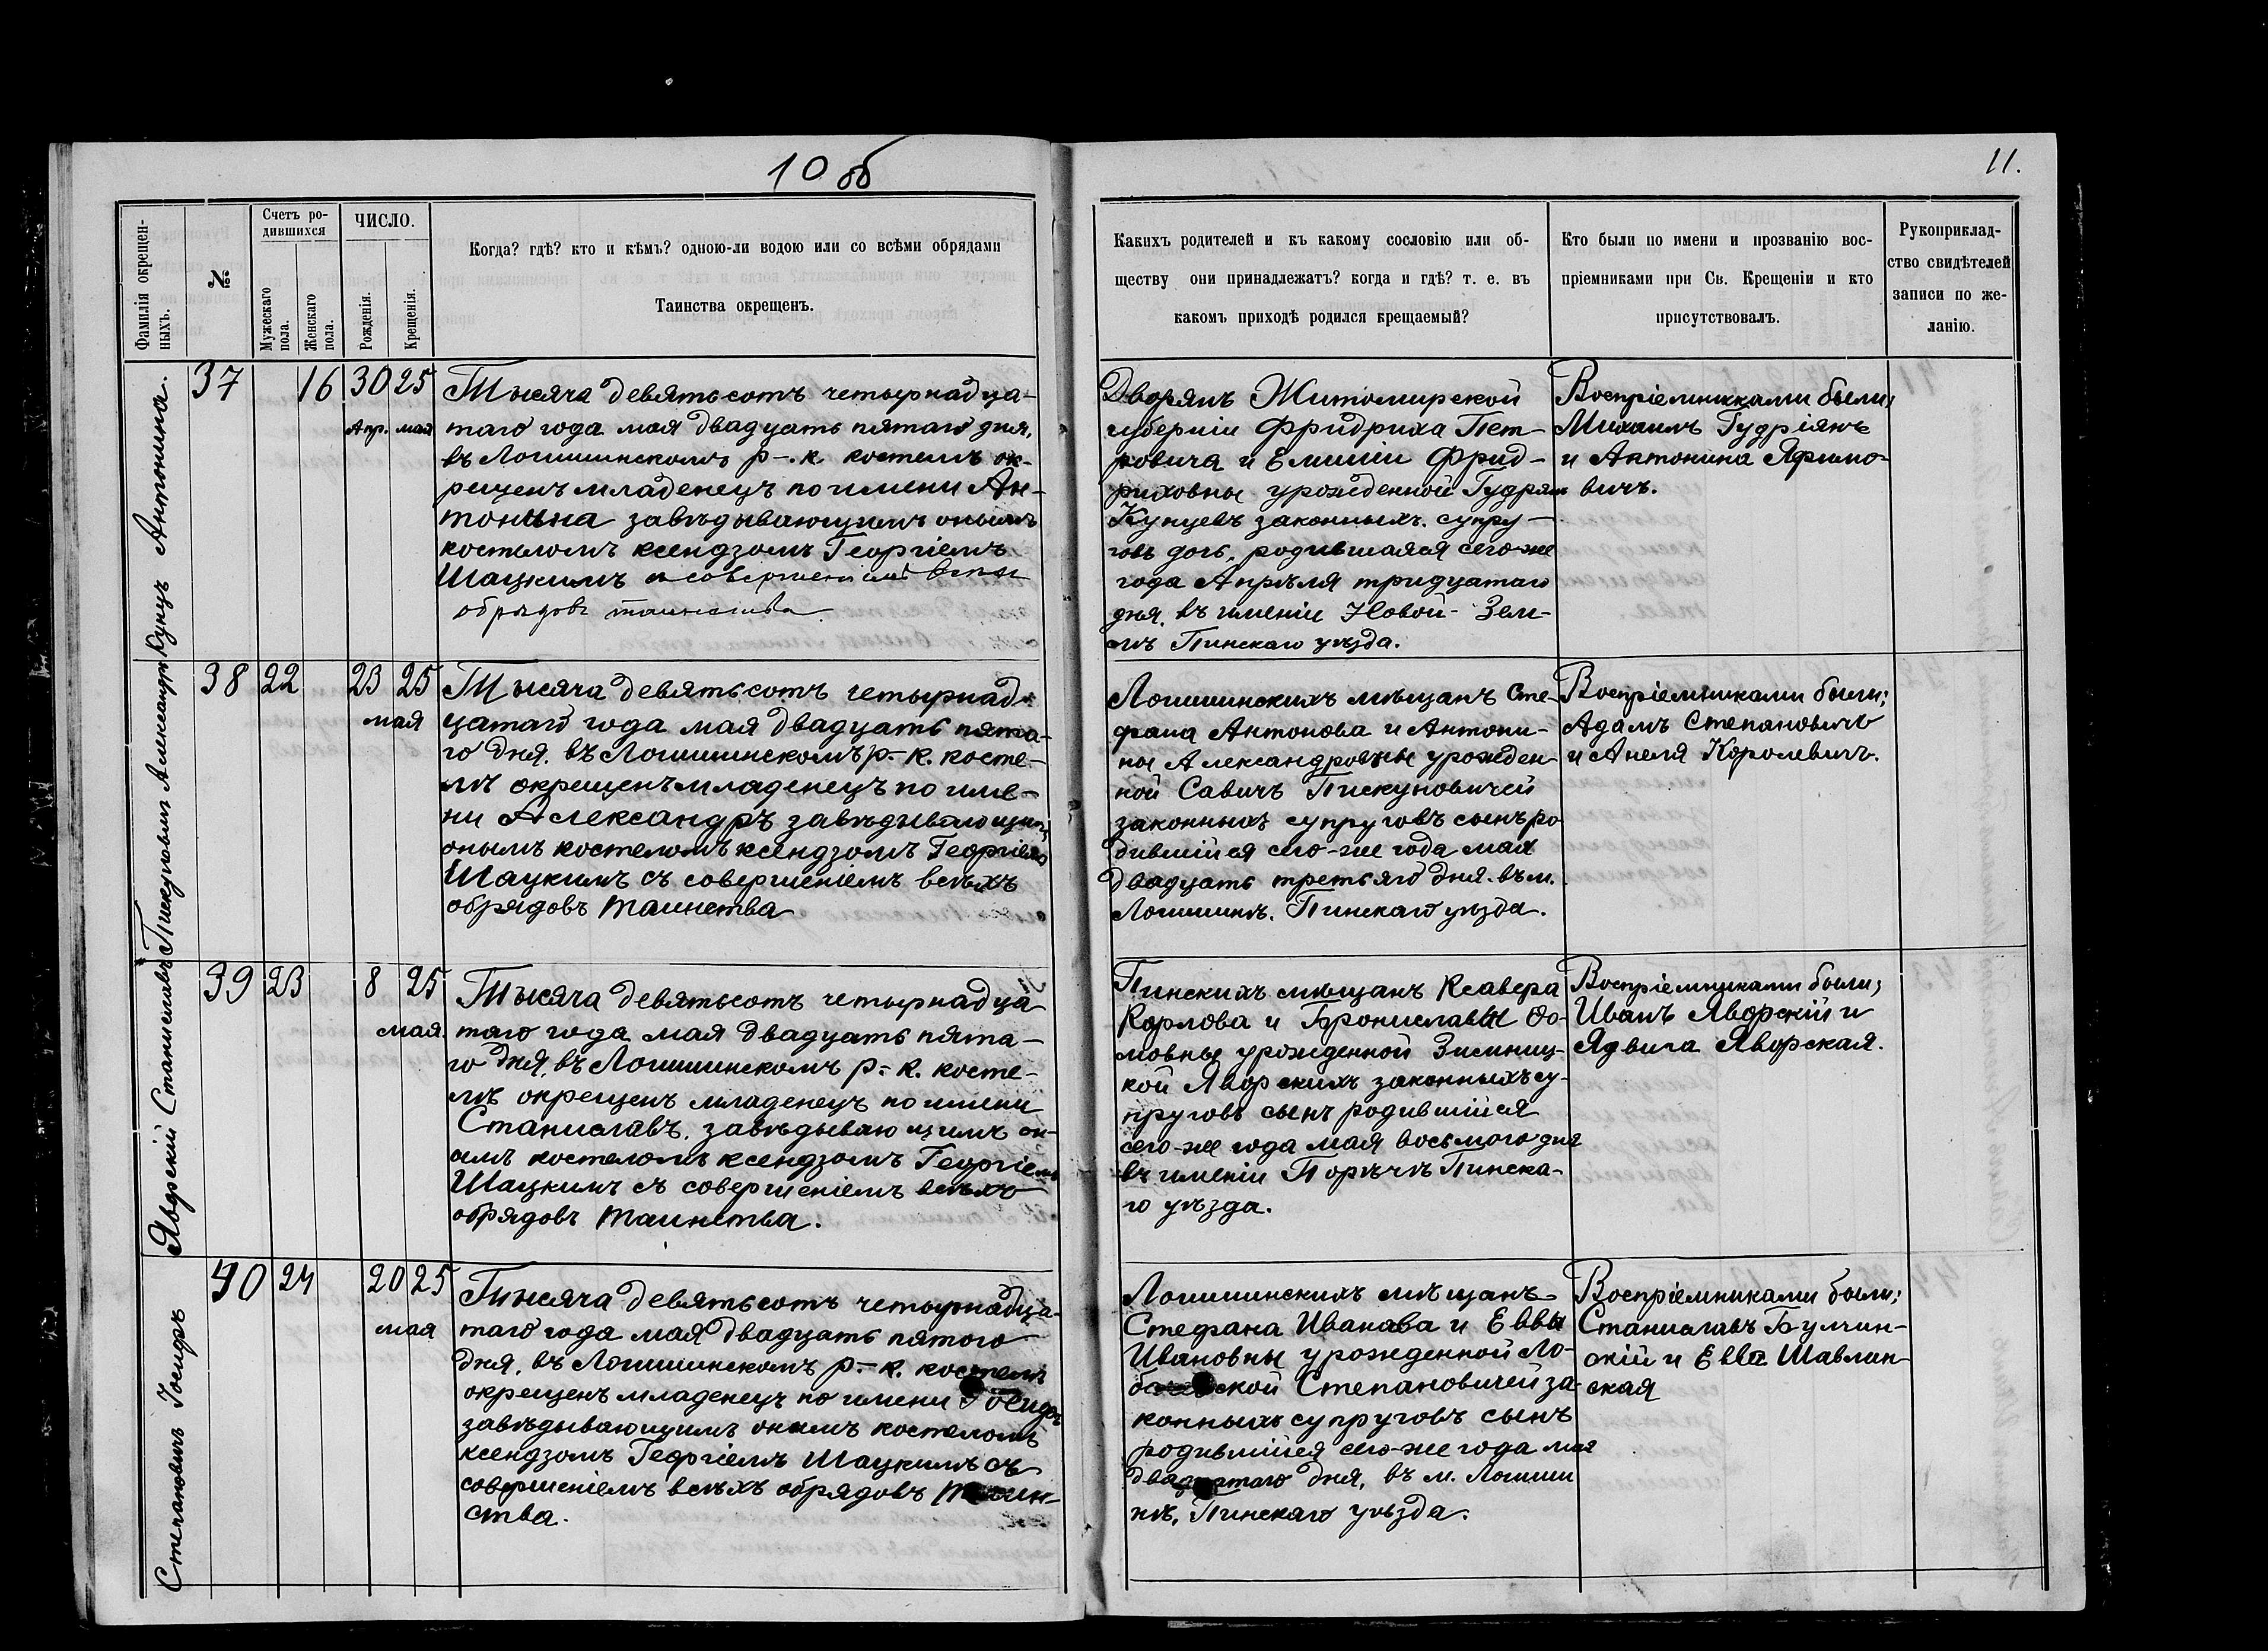 10 об
11.
Фамилія окрещен-
ныхъ.
№
Счетъ ро-
дившихся
Мужескаго
пола.
Женскаго
пола.
ЧИСЛО.
Рожденія.
Крещенія.
Когда? гдѣ? кто и кѣмъ? одною-ли водою или со всѣми обрядами
Таинства окрещенъ.
Какихъ родителей и къ какому сословію или об-
ществу они принадлежатъ? когда и гдѣ? т. е. въ
какомъ приходѣ родился крещаемый?
Кто были по имени и прозванію вос-
пріемниками при Св. Крещеніи и кто
присутствовалъ.
Рукоприклад-
ство свидѣтелей
записи по же-
ланію.
Кунцъ Антонина.
37 16 30 25
Апр. мая
Тысяча девятьсотъ четырнадца-
таго года мая двадцать пятаго дня,
въ Логишинскомъ р-.к. костелѣ ок-
рещенъ младенецъ по имени Ан-
тонина завѣдывающимъ онымъ
костеломъ ксендзомъ Георгіемъ
Шацкимъ съ совершеніемъ всѣхъ
обрядовъ таинства.
Дворянъ Житомирской
губерніи Фридриха Пет-
ровича и Емиліи Фрид-
риховны урожденной Гудрян
Кунцевъ законныхъ супру-
говъ дочь, родившаяся сего-же
года Апрѣля тридцатаго
дня, въ имѣніи Новой-Зем-
лѣ Пинскаго уѣзда.
Воспріемниками были;
Михаилъ Гудріянъ
и Антонина Яфимо-
вичъ.
Пискуновичъ Александръ
38 22 23 25
мая
Тысяча девятьсотъ четырнад-
цатаго года мая двадцать пята-
го дня, въ Логишинскомъ р.-к. косте-
лѣ окрещенъ младенецъ по име-
ни Александръ завѣдывающимъ
онымъ костеломъ ксендзомъ Георгіемъ
Шацкимъ съ совершеніемъ всѣхъ
обрядовъ таинства
Логишинскихъ мѣщанъ Сте-
фана Антонова и Антони-
ны Александровны урожден-
ной Савичъ Пискуновичей
законныхъ супруговъ сынъ ро
дившійся сего-же года мая
двадцать третьяго дня въ м.
Логишинѣ, Пинскаго уѣзда.
Воспріемниками были;
Адамъ Степановичъ
и Анеля Королевичъ.
Яворскій Станиславъ
39 23 8 25
мая.
Тысяча девятьсотъ четырнадца
таго года мая двадцать пята-
го дня, въ Логишинскомъ р.-к. косте-
лѣ окрещенъ младенецъ по имени
Станиславъ, завѣдывающимъ он-
ымъ костеломъ ксендзомъ Георгіемъ
Шацкимъ съ совершеніемъ всѣхъ
обрядовъ таинства.
Пинскихъ мѣщанъ Ксавера
Карлова и Брониславы Фо-
мовны урожденной Зимниц-
кой Яворскихъ законныхъ су-
пруговъ сынъ родившійся
сего-же года мая восьмого дня
въ имѣніи Порѣчѣ Пинска-
го уѣзда.
Воспріемниками были;
Иванъ Яворскій и
Ядвига Яворская.
Степановичъ Іосифъ
40 24 20 25
мая
Тысяча девятьсотъ четырнадца-
таго года мая двадцать пятого
дня, въ Логишинскомъ р.-к. костелѣ
окрещенъ младенецъ по имени Іосифъ
завѣдывающимъ онымъ костеломъ
ксендзомъ Георгіемъ Шацкимъ съ
совершеніемъ всѣхъ обрядовъ таин-
ства.
Логишинскихъ мѣщанъ
Стефана Иванава и Еввы
Ивановны урожденной
Степановичей за-
конныхъ супруговъ сынъ
родившійся сего-же года мая
двадцатаго дня, въ м. Логиши
нѣ, Пинскаго уѣзда.
Воспріемниками были;
Станиславъ Булчин-
скій и Евва Шавлин-
ская